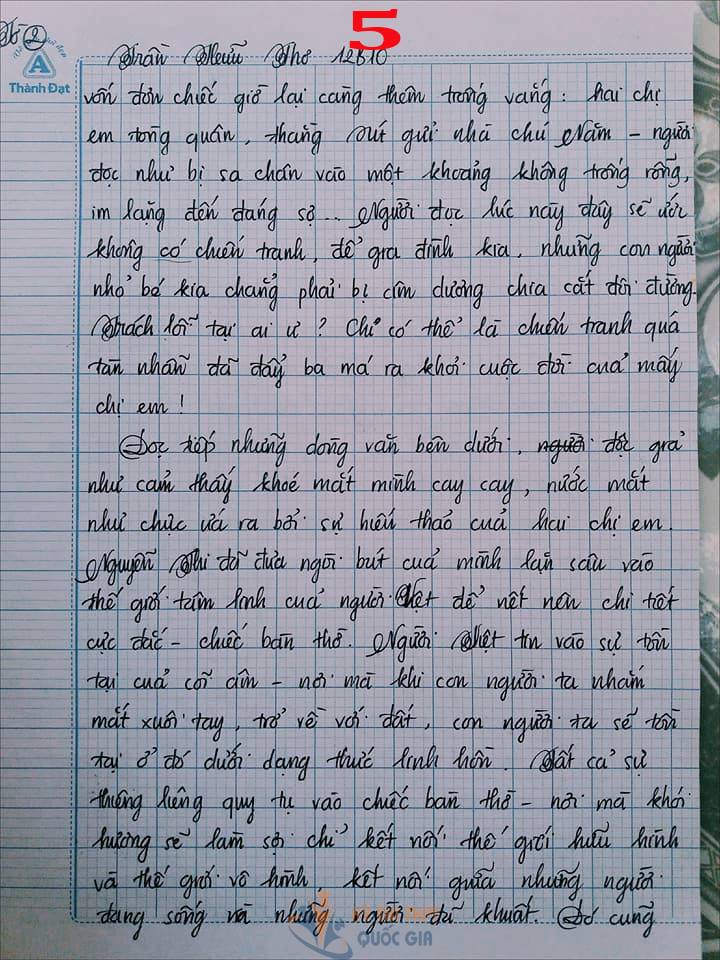 5
Tờ 2
Trần Hữu Thơ 12B10
Thành Đạt
vốn đơn chiếc giờ lại càng thêm trống vắng: hai chị
em tòng quân, thằng Út gửi nhà chú Năm - người
đọc như bị sa chân vào một khoảng không trống rỗng,
im lặng đến đáng sợ... Người đọc lúc này đây sẽ ước
không có chiến tranh, để gia đình kia, những con người
nhỏ bé kia chẳng phải bị âm dương chia cắt đôi đường.
Trách lỗi tại ai ư? Chỉ có thể là chiến tranh quá
tàn nhẫn đã đẩy ba má ra khỏi cuộc đời của mấy
chị em!
Đọc tiếp những dòng văn bên dưới, người độc giả
như cảm thấy khoé mắt mình cay cay, nước mắt
như chực ứa ra bởi sự hiếu thảo của hai chị em.
Nguyễn Thi đã đưa ngòi bút của mình lặn sâu vào
thế giới tâm linh của người Việt để nết nên chi tiết
cực đắc - chiếc bàn thờ. Người Việt tin vào sự tồn
tại của cõi âm - nơi mà khi con người ta nhắm
mắt xuôi tay, trở về với đất, con người ta sẽ tồn
tại ở đó dưới dạng thức linh hồn. Tất cả sự
thiêng liêng quy tụ vào chiếc bàn thờ - nơi mà khói
hương sẽ làm sợi chỉ kết nối thế giới hữu hình
và thế giới vô hình, kết nối giữa những người
đang sống và những người đã khuất. Đó cũng
QUỐC GIA